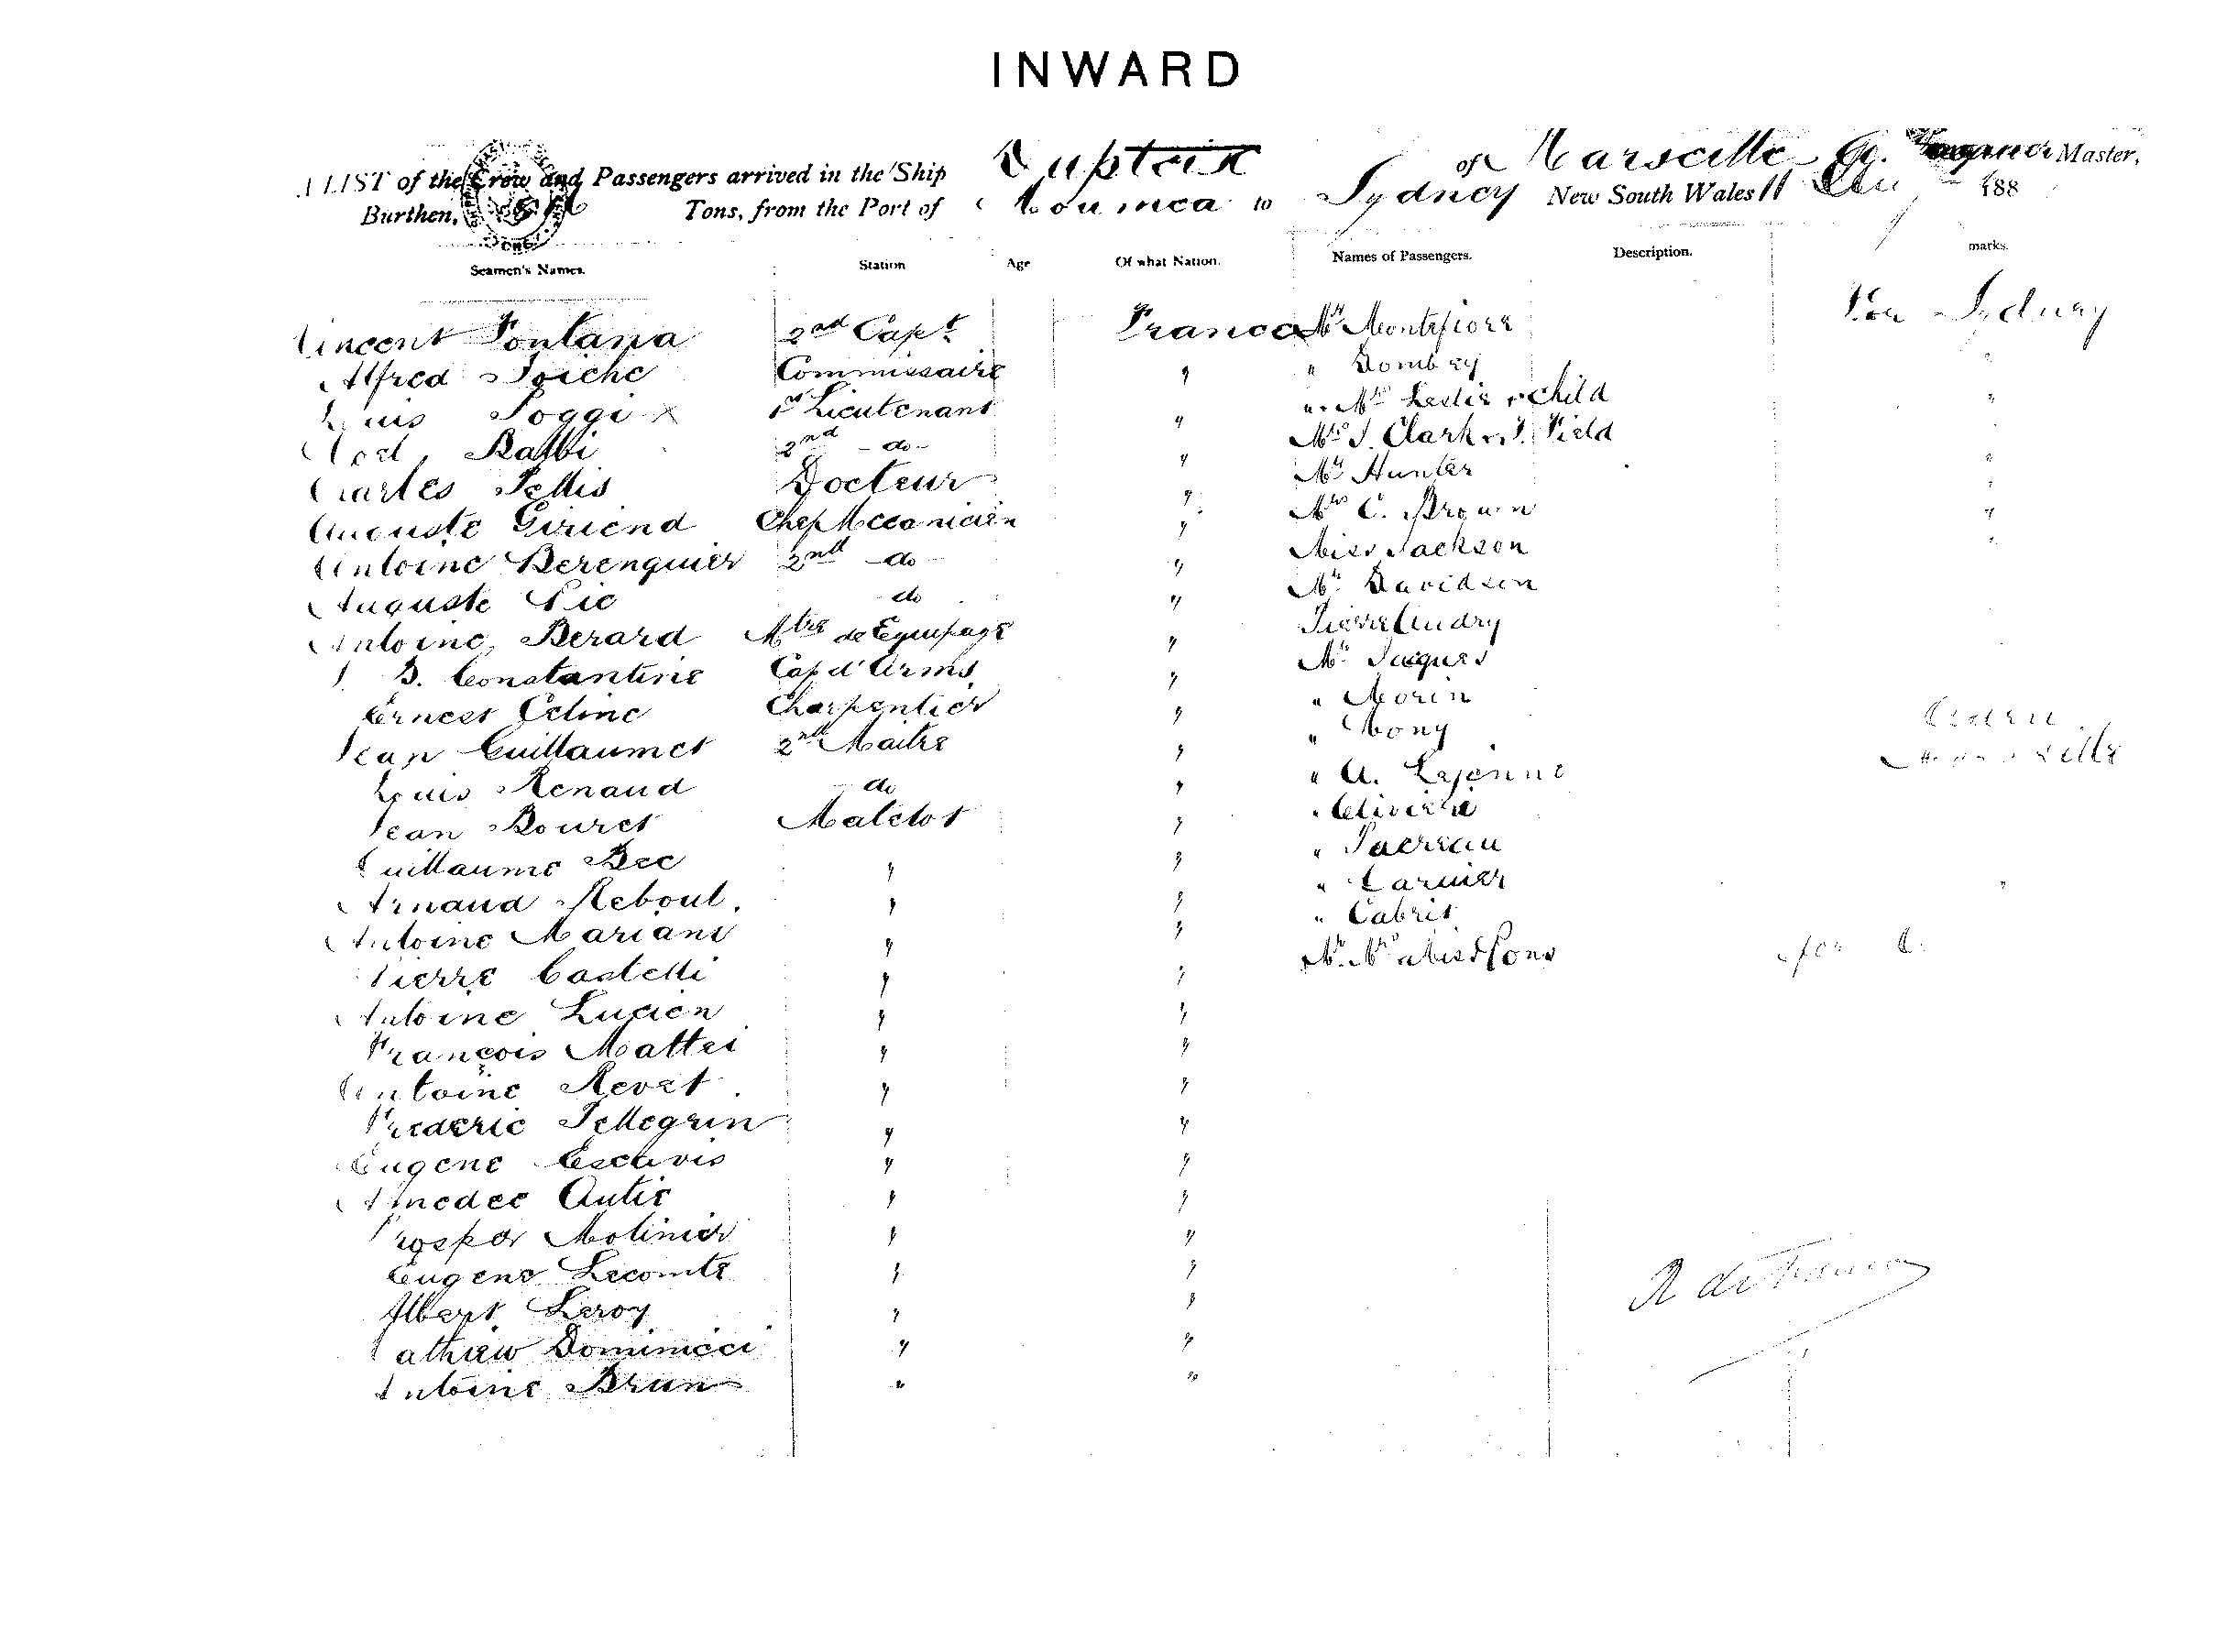 INWARD
A LIST of the Crew and Passengers arrived in the Ship Dupleix of Marseille G. Master,
Burthen, Tons, from the Port of Noumea to Sydney New South Wales 11 188
Seamen's Names. Station Age Of what Nation. Names of Passengers. Description. marks.
Vincent Fontana 2nd Capt France Mr Montefiore For Sydney
Alfred Commissaire " " Dombey "
Louis Poggi x 1st Lieutenant " " Mrs Leslie & child "
Noel Balbi 2nd - do - " Mrs J. Clark & J. Field
Charles Pellis Docteur " Mr Hunter "
Auguste Giriend Chef Mecanicien " Mrs C. Brown "
Antoine Berenguier 2nd - do - " Miss Jackson "
Auguste Pic do " Mr Davidson
Antoine Berard Mtre de Equipage " Pierre Audry
J. B. Constantine Cap d'Arms " Mr Jacques
Ernest Celine Charpentier " " Morin
Jean Guillaumet 2nd Maitre " " Mony
Louis Renaud do " " A. Lejenne
Jean Bouret Matelot " "
Guillaume Bec " " "
Arnaud Reboul. " " " "
Antoine Mariani " " " Cabrit
Pierre Castelli " " Mr Mrs for
Antoine Lucien " "
François Mattei " "
Antoine Revet " "
Frederic Pellegrin " "
Eugene Esclavis " "
Amedee Autie " "
Prosper Molinier " "
Eugene Lecomte " "
Albert Leroy " "
Mathieu Dominicci " "
Antoine Brun " "